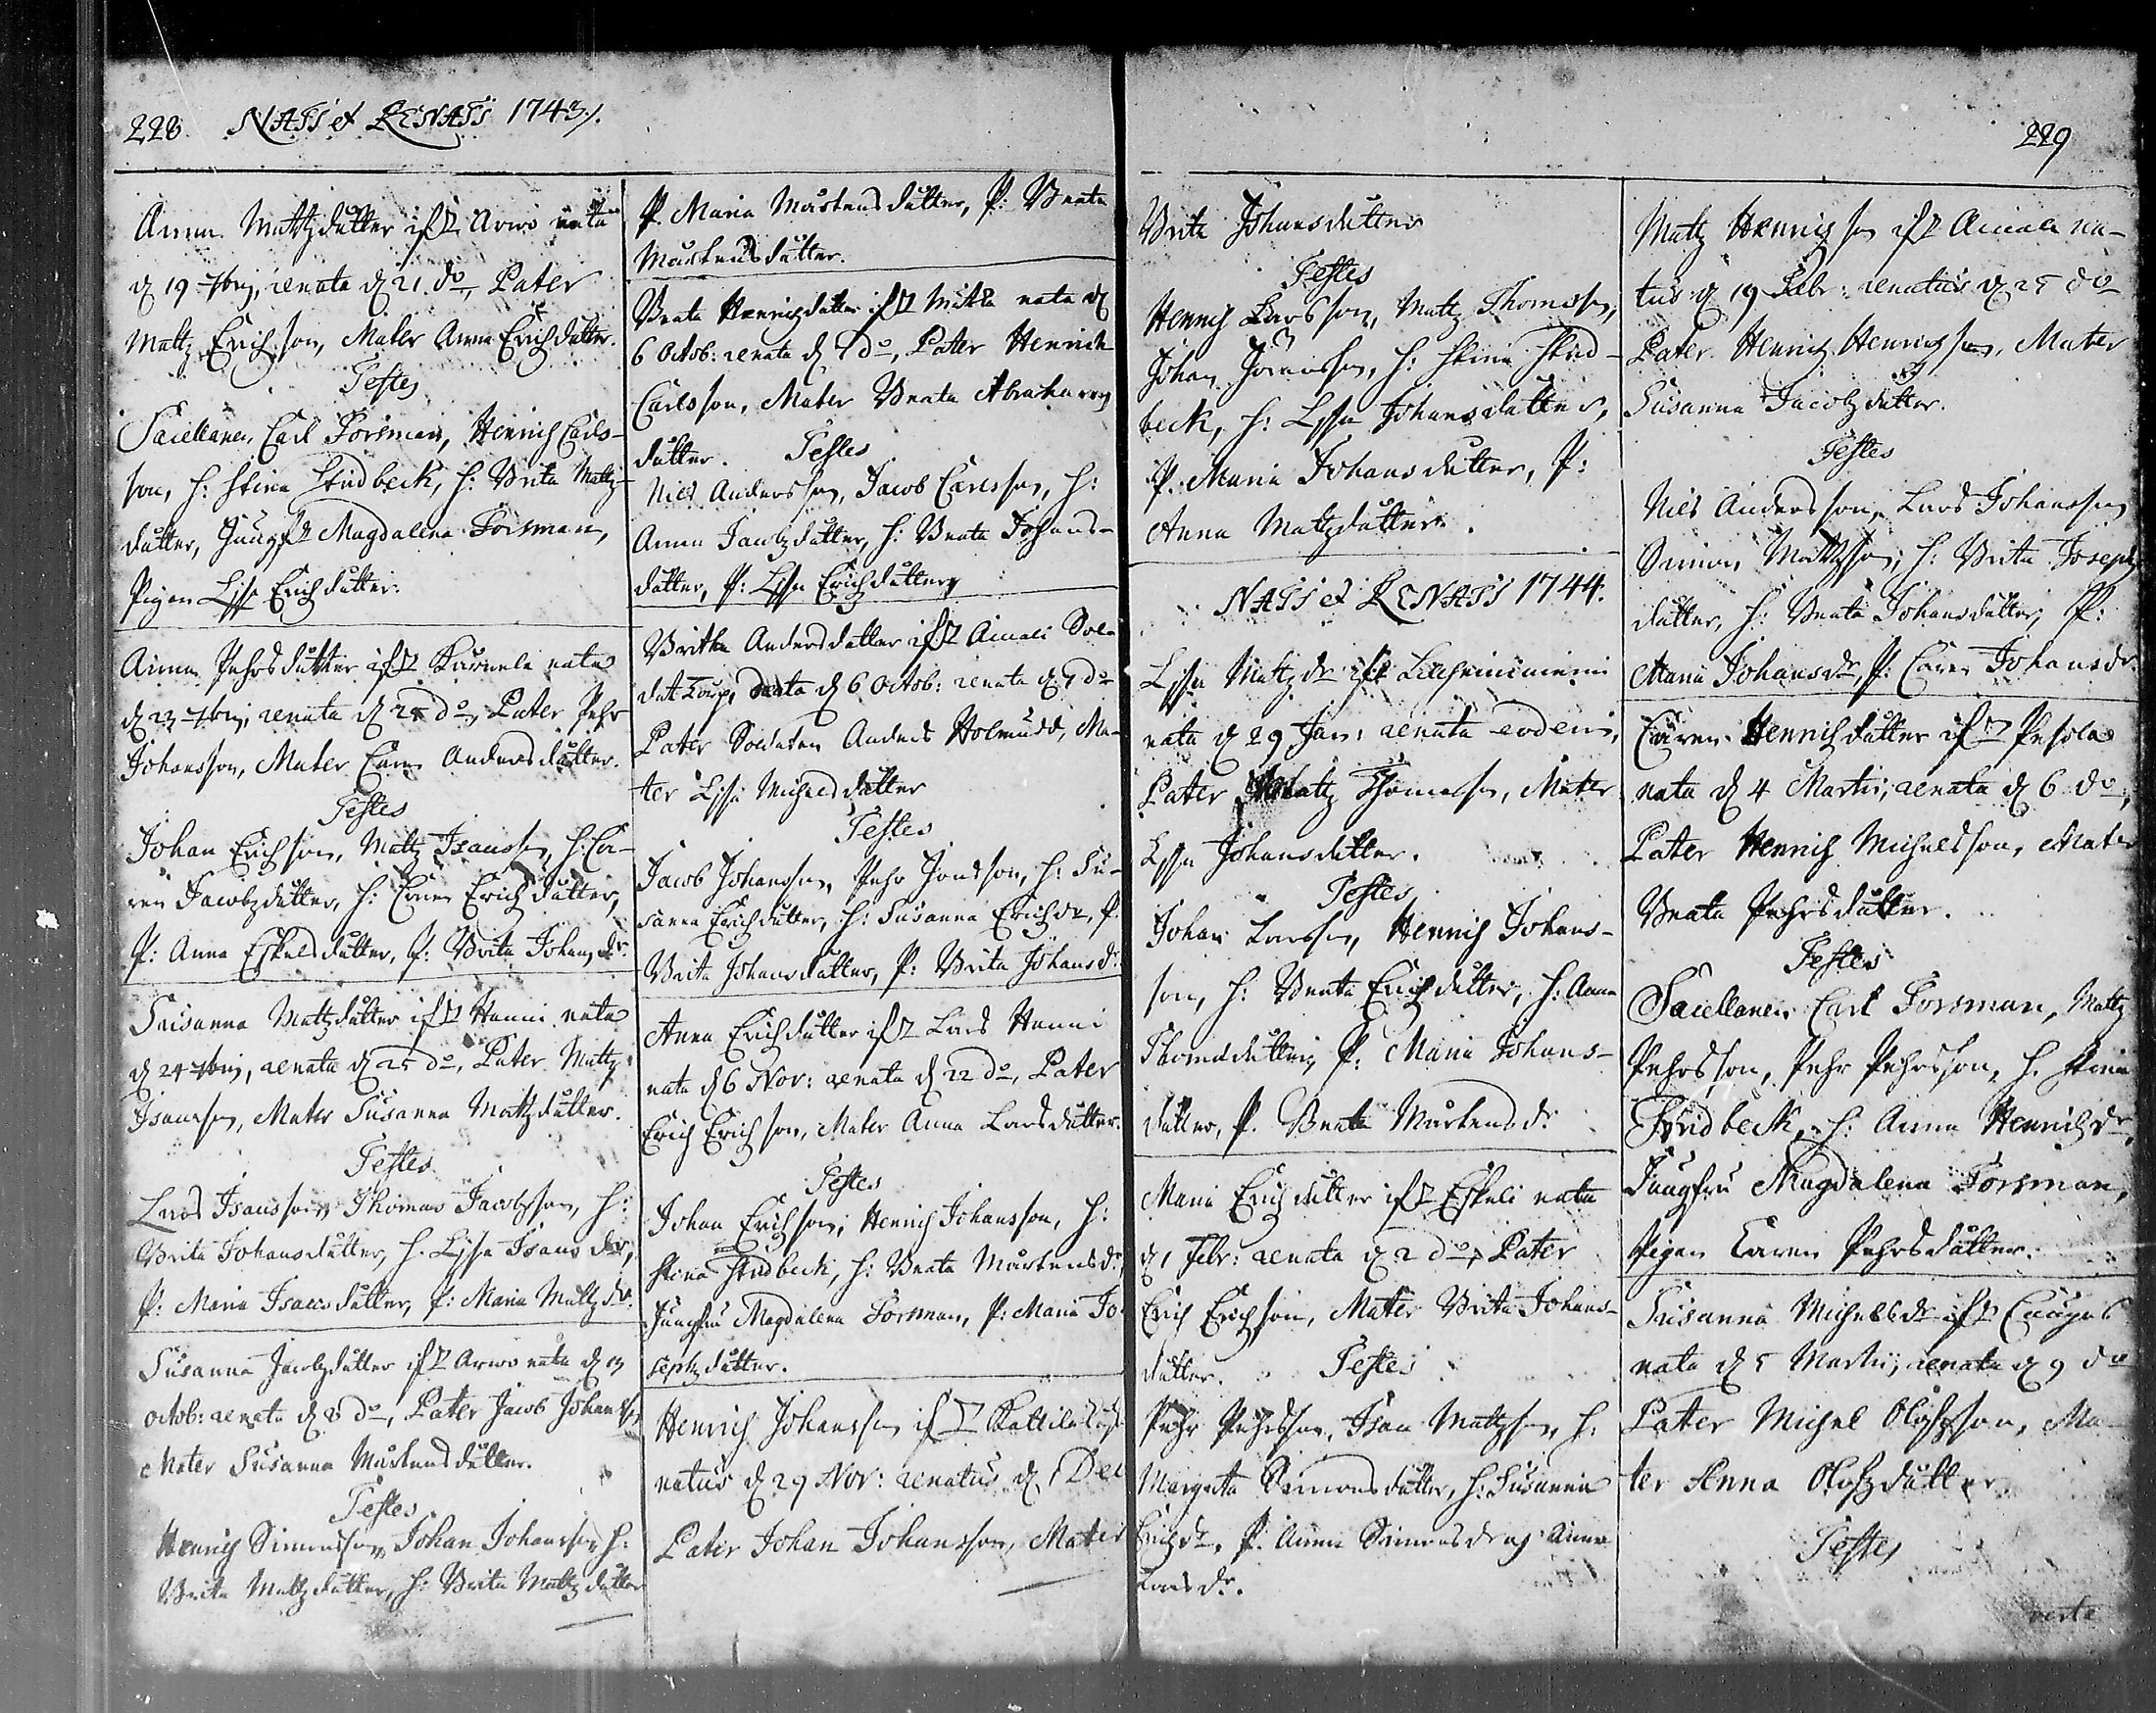 228. NATI et RENATI 1743/.
Anna Mattzdutter ifr Arvo nata
d 19 7bris, renata d 21. do, Pater
Mattz Erichson, Mater Anna Erichdutter.
Testes
Caiellanen Carl Forsman, Henrich Carls-
son, H: Stina Studbeck, H: Brita Mattz-
dutter, Jungfr Magdalena Forsman,
Pigan Lisa Erichdutter.
Anna Pehrsdutter ifr nata
d 23 7bris, renata d 25 do, Pater Pehr
Johansson, Mater Caren Andersdutter.
Testes
Johan Erichson, Mattz Isacsson, H: Ca-
ren Jacobzdutter, H: Caren Erichdutter,
P: Anna Eskelsdutter, P: Brita Johansdr.
Susanna Mattzdutter ifr Hanni nata
d 24 7bris, renata d 25 do, Pater Mattz
Isacsson, Mater Susanna Mattzdutter.
Testes
Lars Isacsson, Thomas Jacobsson, H:
Brita Johansdutter, H: Lisa Isacsdr,
P: Maria Isacsdutter, P: Maria Mattzdr.
Susanna Jacobzdutter ifr Arvo nata d
Octob: renata d 8 do, Pater Jacob Johansson,
Mater Susanna Mårtensdutter.
Testes
Henrich Simonsson, Johan Johansson, H:
Brita Mattzdutter, H: Brita Mattzdutter
P. Maria Mårtensdutter, P: Beata
Mårtensdutter.
Beata Henrichdutter ifr Mikla nata d
6 Octob: renata d 7 do, Pater Henrich
Carlsson, Mater Beata Abrahams
dutter. Testes
Niels Andersson, Jacob Carlsson, H:
Anna Jacobzdutter, H: Beata Johans-
dutter, P: Lisa Erichdutter,
Britha Andersdutter ifr Ainali Sol-
dat Torp, nata d 6 Octob: renata d 7 do
Pater Soldaten Anders Holmudd, Ma-
ter Lisa Michelsdutter
Testes
Jacob Johansson, Pehr Jonsson, H: Su-
sanna Erichdutter, H: Susanna Erichdr, P.
Brita Johansdutter, P: Brita Johansdr.
Anna Erichdutter ifr Lars Hanni
nata d 6 Nov: renata d 22 do, Pater
Erich Erichson, Mater Anna Larsdutter.
Testes
Johan Erichson, Henrich Johansson, H:
Stina Studbeck, H: Beata Mårtensdr,
Jungfru Magdalena Forsman, P: Maria Jo-
sephzdutter.
Henrich Johansson ifr
natus d 29 Nov: renatus d 1 Dec
Pater Johan Johansson, Mater
229
Brita Johansdutter
Testes
Henrich Larsson, Mattz Thomsson,
Johan H: Stina Stud-
beck, H: Lisa Johansdutter,
P: Maria Johansdutter, P:
Anna Mattzdutter.
NATI et RENATI 1744.
Lisa Mattzdr ifr
nata d 29 Jan: renata eodem,
Pater Mattz Thomasson, Mater
Lisa Johansdutter.
Testes
Johan Larsson, Henrich Johans-
son, H: Beata Erichdutter, H: Anna
Thomasdutter, P: Maria Johans-
dutter, P. Beata Mårtensdr
Maria Erichdutter ifr Eskeli nata
d 1 Febr: renata d 2 do, Pater
Erich Erichson, Mater Brita Johans-
dutter. Testes
Pehr Pehrsson, Isac Mattzson, H:
Margreta Simonsdutter, H: Susanna
Erichdr, P. Anna Simonsdr, och Anna
Larsdr.
Mattz Henrichson ifr Ainala na-
tus d 19 Febr: renatus d 25 do
Pater Henrich Henrichson, Mater
Susanna Jacobzdutter.
Testes
Niels Andersson, Lars Johansson
Simon Mattzson, H: Brita Josephz
dutter, H: Beata Johansdutter, P:
Maria Johansdr, P: Caren Johansdr.
Caren Henrichdutter ifr Pesola
nata d 4 Martii, renata d 6 do,
Pater Henrich Michelsson, Mater
Beata Pehrsdutter.
Testes
Caiellanen Carl Forsman, Mattz
Pehrsson, Pehr Pehrsson, H. Stina
Studbeck, H: Anna Henrichdr,
Jungfru Magdalena Forsman,
Pigan Caren Pehrsdutter.
Susanna Michelsdr ifr
nata d 5 Martii, renata d 9 do
Pater Michel Olofsson, Ma-
ter Anna Olofzdutter
Testes
verte